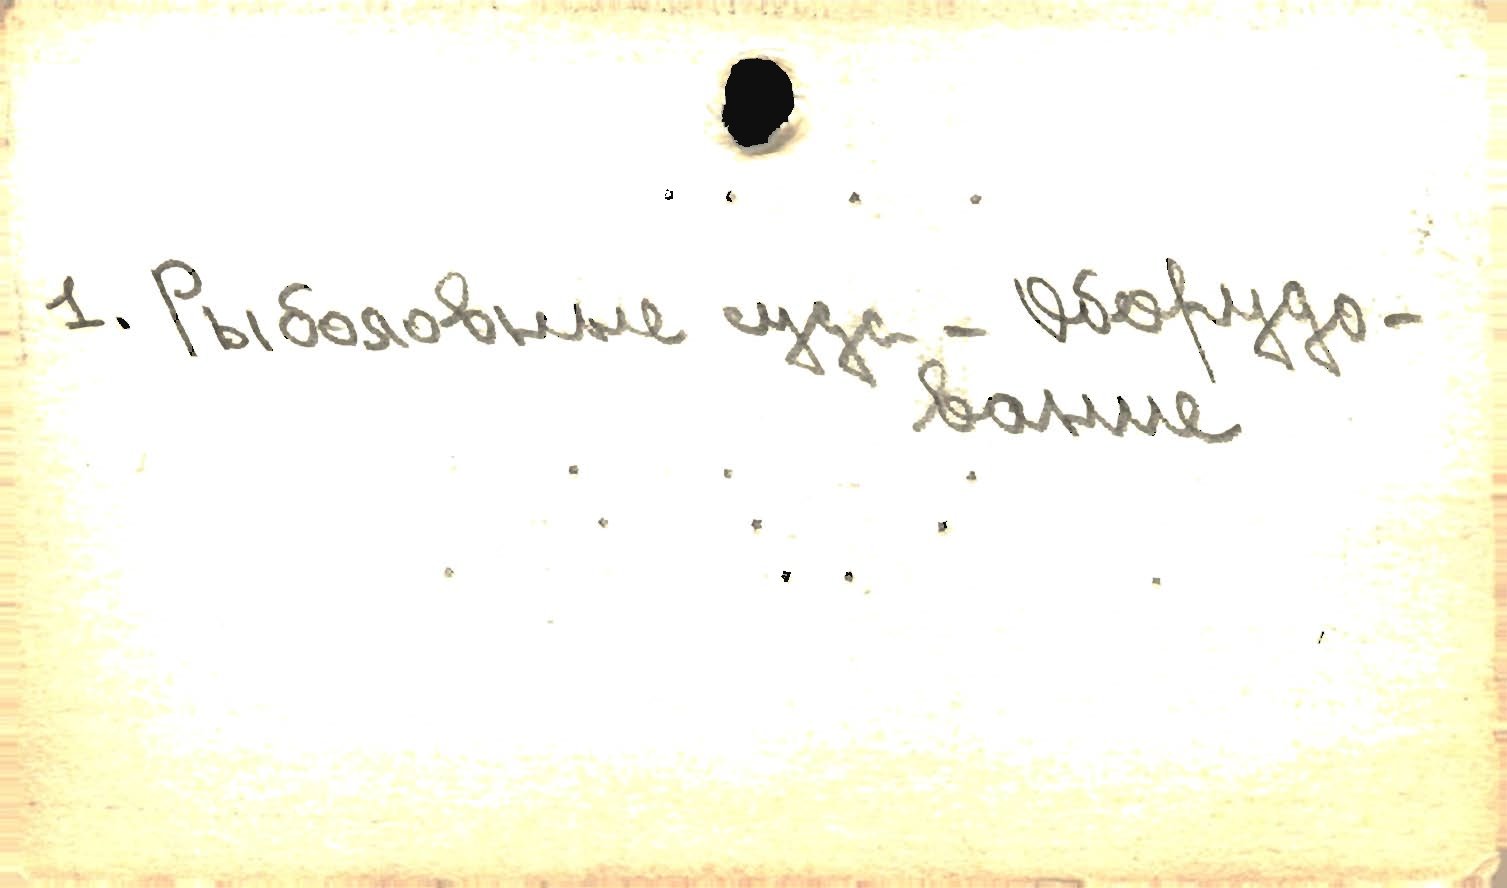 1. Рыболовные суда - Оборудо-
вание